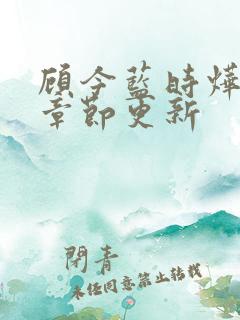 顾今藍時燁
章節更新
閒青
未经同意禁止转载